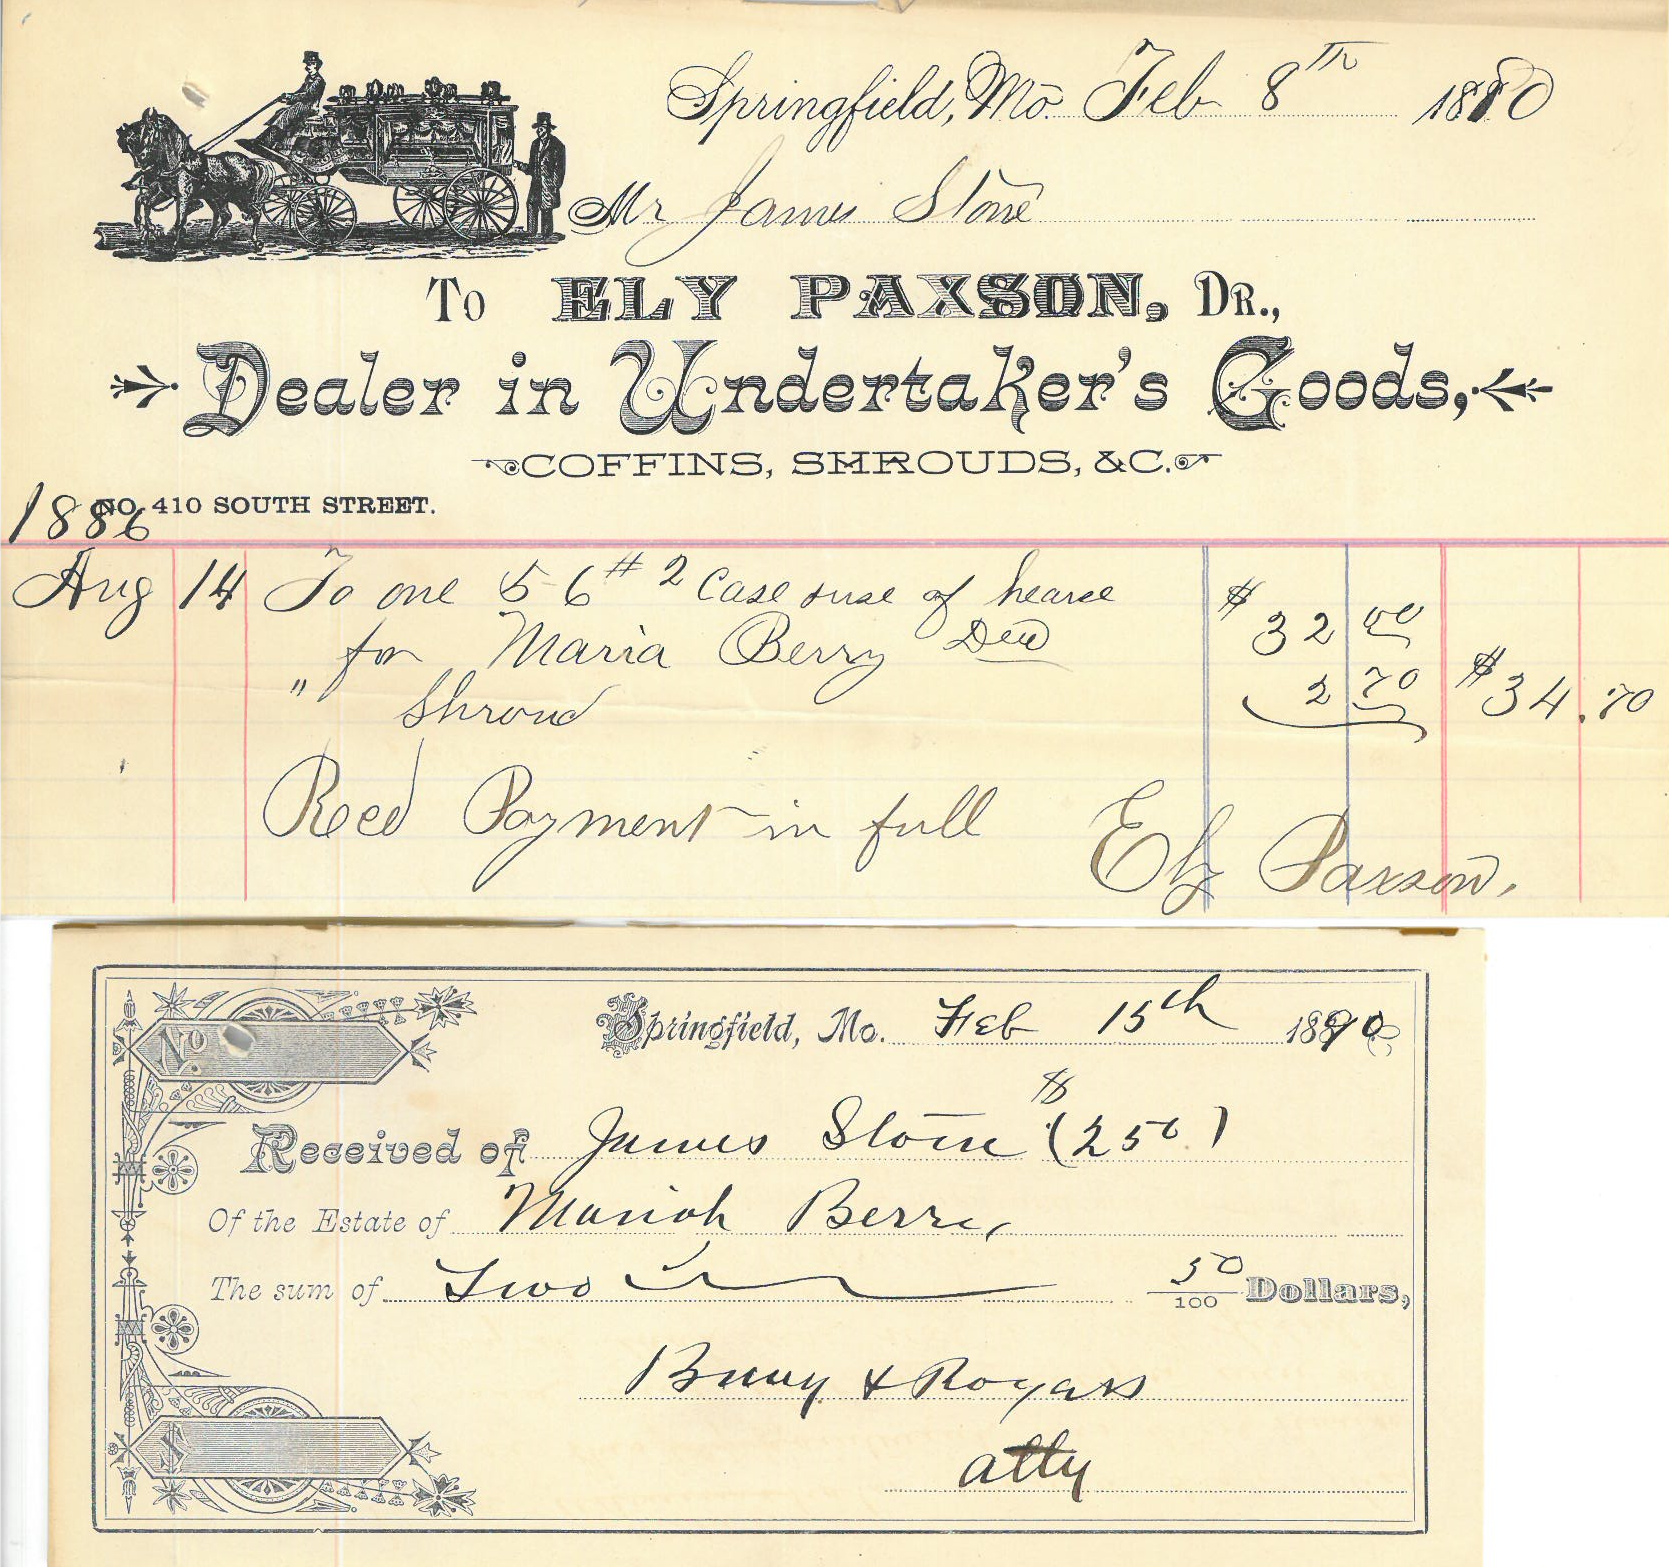 Springfield, Mo. Feb 8th 1890
Mr James Stone
To ELY PAXSON, Dr.,
Dealer in Undertaker's Goods,
COFFINS, SHROUDS, &C.
NO. 410 SOUTH STREET.
1886
Aug 14 To one 5-6 #2 Case & use of hearse
for Maria Berry Decd $32 00
" Shroud 2 70 $34.70
Recd Payment in full Ely Paxson.
Springfield, Mo. Feb 15th 1890
No.
Received of James Stone $(250)
Of the Estate of Mariah Berry
The sum of Two 50/100 Dollars,
& Rogers
$ atty